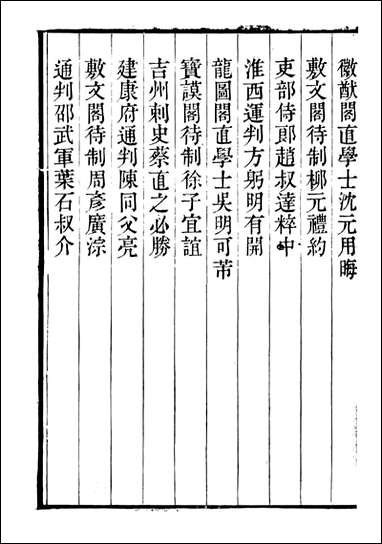 徽猷閣直學士沈元用晦
敷文閣待制柳元禮約
吏部侍郎趙叔達粹中
淮西運判方躬明有開
龍圖閣直學士吳明可芾
寶謨閣待制徐子宜誼
吉州刺史蔡直之必勝
建康府通判陳同父亮
敷文閣待制周彥廣淙
通判邵武軍葉石叔介